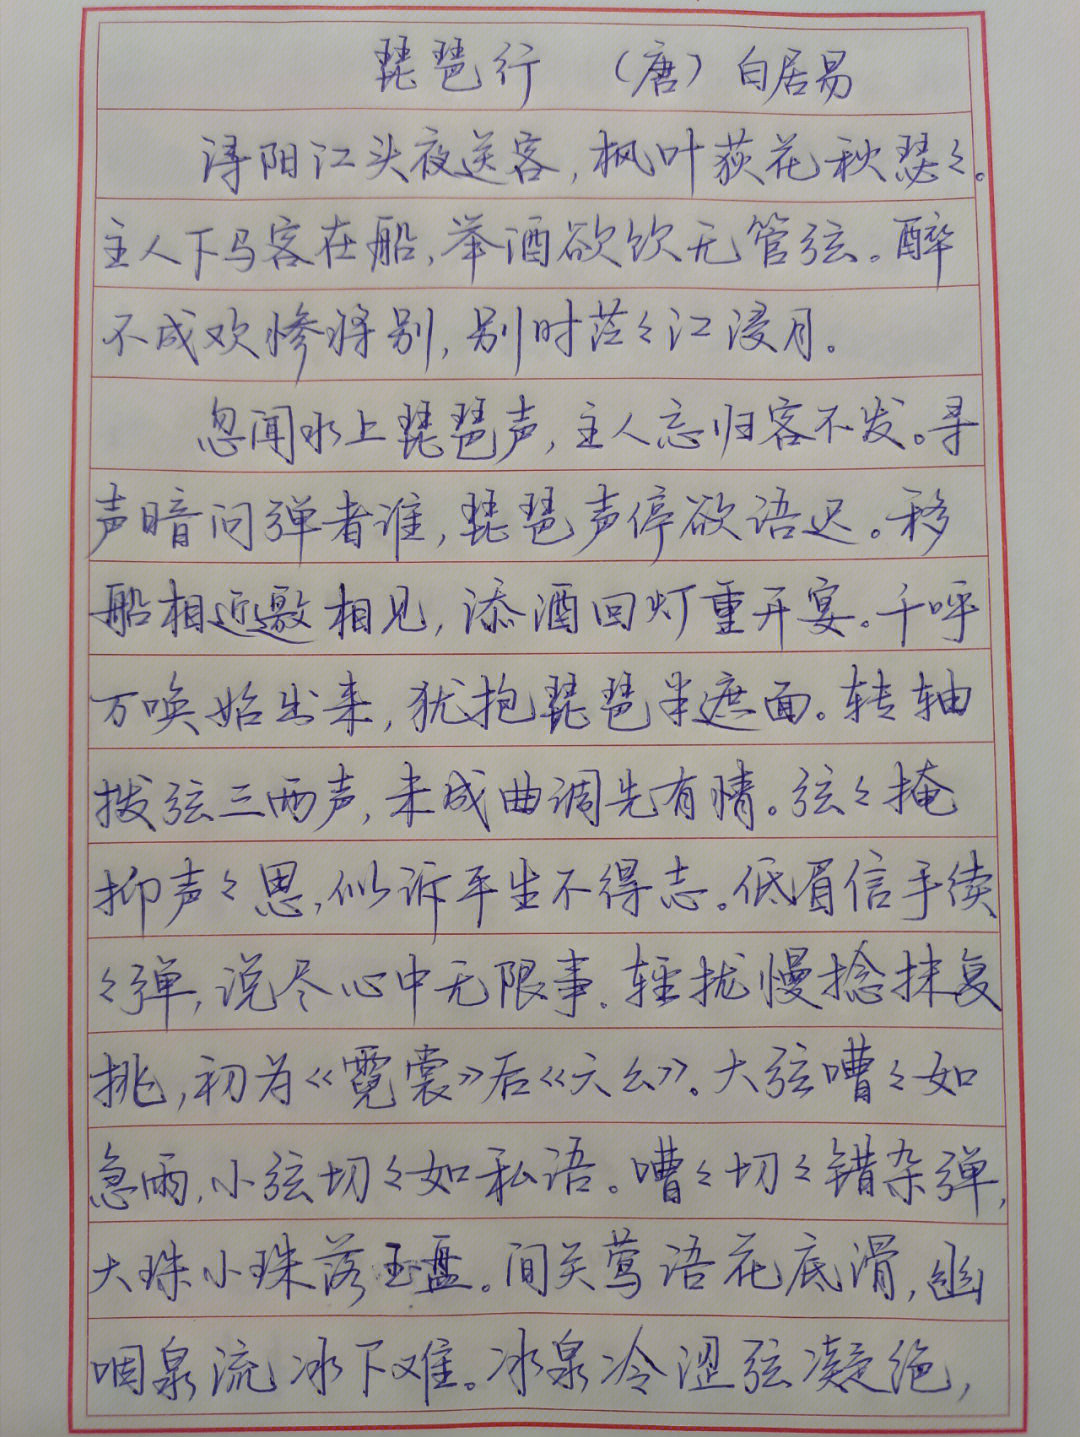 琵琶行 （唐）白居易
浔阳江头夜送客，枫叶荻花秋瑟々。
主人下马客在船，举酒欲饮无管弦。醉
不成欢惨将别，别时茫々江浸月。
忽闻水上琵琶声，主人忘归客不发。寻
声暗问弹者谁，琵琶声停欲语迟。移
船相近邀相见，添酒回灯重开宴。千呼
万唤始出来，犹抱琵琶半遮面。转轴
拨弦三两声，未成曲调先有情。弦々掩
抑声々思，似诉平生不得志。低眉信手续
々弹，说尽心中无限事。轻拢慢捻抹复
挑，初为《霓裳》后《六幺》。大弦嘈々如
急雨，小弦切々如私语。嘈々切々错杂弹，
大珠小珠落玉盘。间关莺语花底滑，幽
咽泉流冰下难。冰泉冷涩弦凝绝，